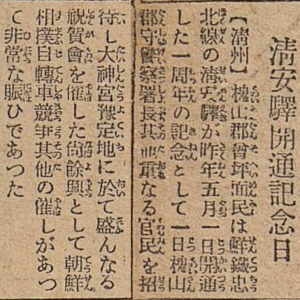 清安驛開通記念日
【淸州】槐山郡曾坪面民は鮮鐵忠
北線の清安驛が昨年五月一日開通
した一周年の記念として一日槐山
郡守警察署長其他重なる官民を招
待し大神宮豫定地に於て盛んなる
祝賀會を催した尙餘興として朝鮮
相撲自轉車競爭其他の催しがあつ
て非常な賑ひであつた